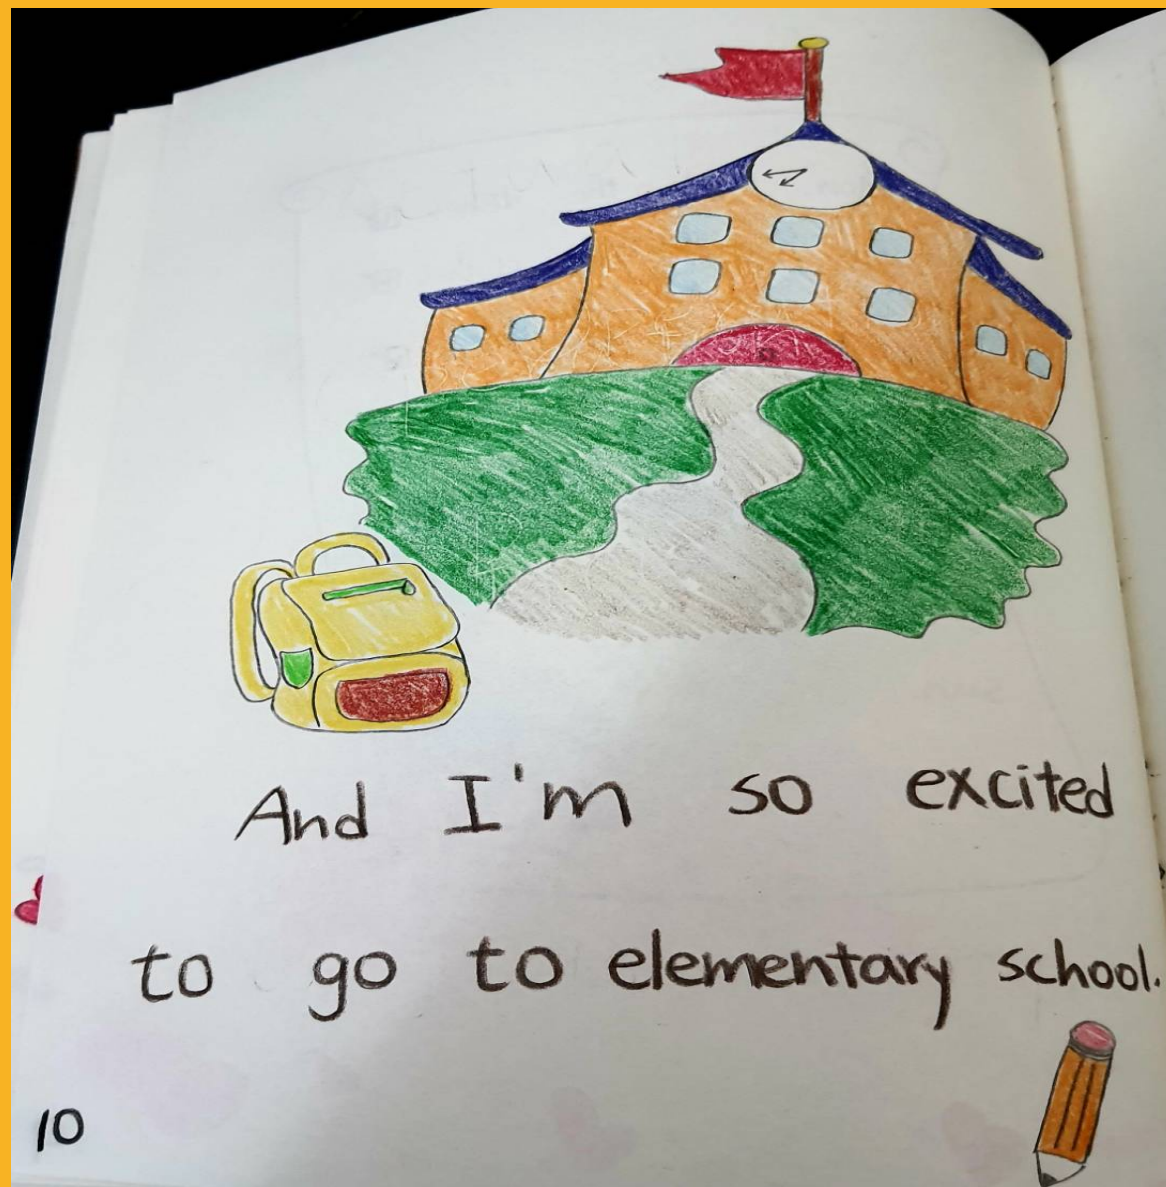 And I'm so excited
to go to elementary school.
10